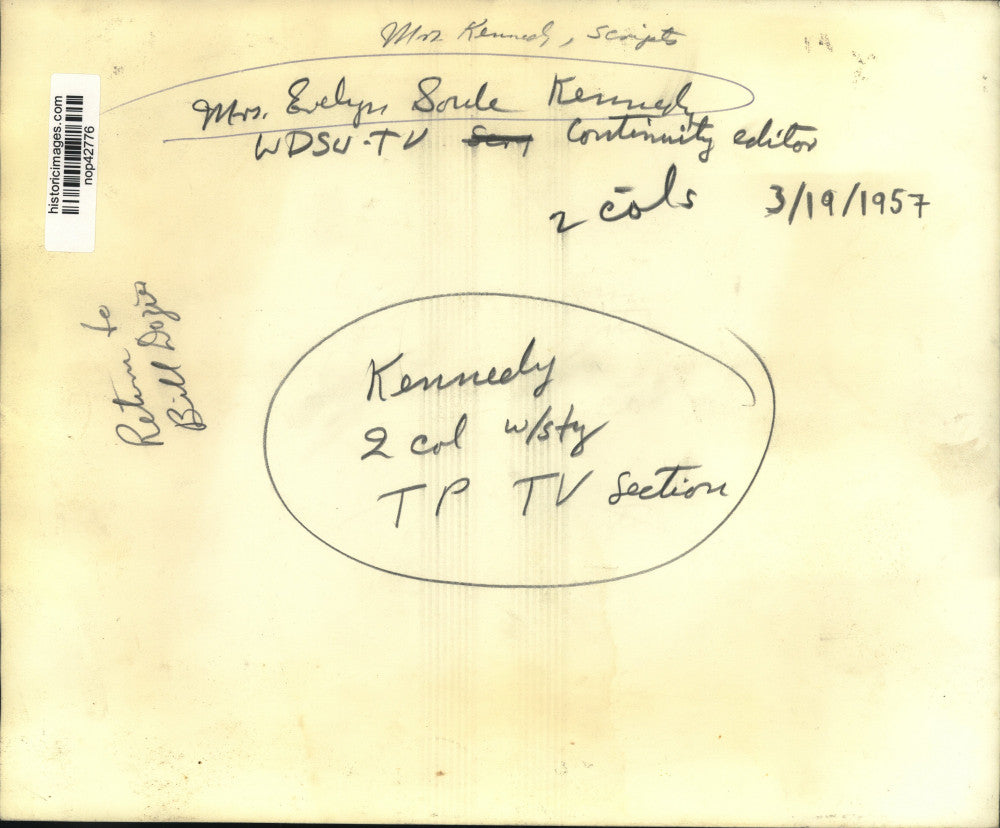 Mrs. Kennedy, scripts
Mrs. Evelyn Soule Kennedy
WDSU-TV Continuity editor
2 cols 3/19/1957
historicimages.com
nop42776
Return to
Bill Dozier
Kennedy
2 col w/sty
TP TV Section